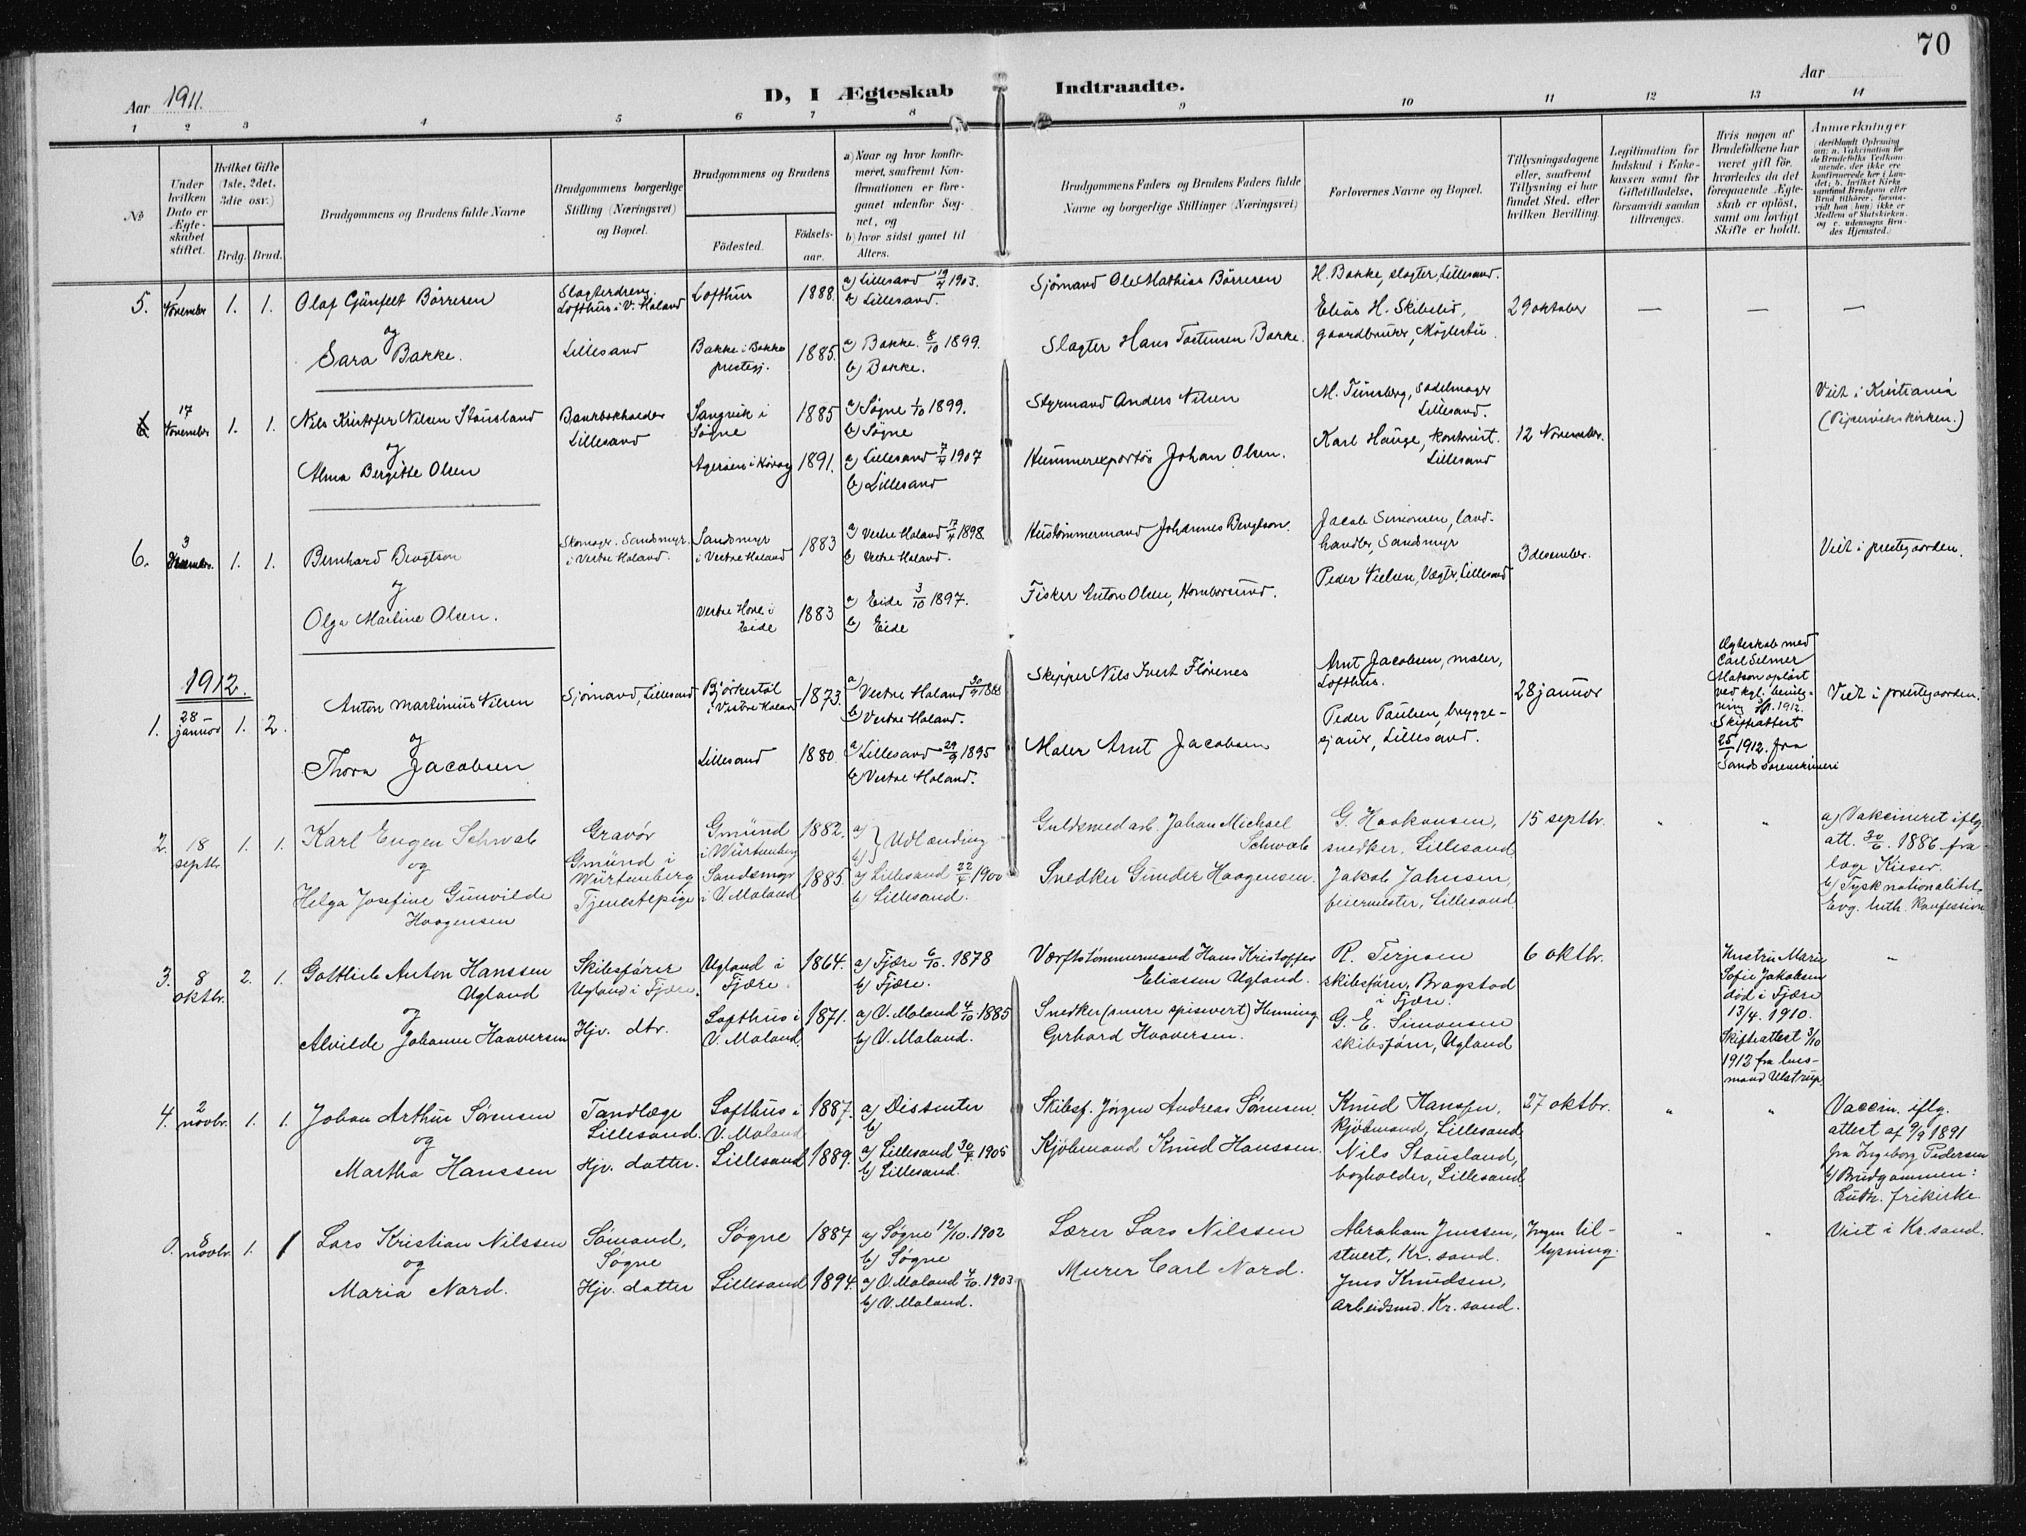 70
Aar 1911.
D, I Ægteskab Indtraadte.
Aar
1 2 3 4 5 6 7 8 9 10 11 12 13 14
No
Under hvilken Dato er Ægteskabet stiftet.
Hvilket Gifte (1ste, 2det, 3die osv.)
Brdg. Brud.
Brudgommens og Brudens fulde Navne
Brudgommens borgerlige Stilling (Næringsvei) og Bopæl.
Brudgommens og Brudens
Fødested. Fødselsaar.
a) Naar og hvor konfirmeret, saafremt Konfirmationen er foregaaet udenfor Sognet, og
b) hvor sidst gaaet til Alters.
Brudgommens Faders og Brudens Faders fulde Navne og borgerlige Stillinger (Næringsvei)
Forlovernes Navne og Bopæl.
Tillysningsdagene eller, saafremt Tillysning ei har fundet Sted, efter hvilken Bevilling.
Legitimation for Indskud i Enkekassen samt for Giftetilladelse, forsaavidt saadan tiltrænges.
Hvis nogen af Brudefolkene har været gift før, hvorledes da det foregaaende Ægteskab er opløst, samt om lovligt Skifte er holdt.
Anmerkninger
5. 1 November 1. 1.
Olaf Günfelt Børresen
og
Sara Bakke.
Slagterdreng. Lofthus i V. Moland
Lillesand
Lofthus 1888.
Bakke i Bakke prestegj. 1885.
a) Lillesand 19/4 1903.
b) Lillesand.
a) Bakke. 8/10 1899.
b) Bakke.
Sjømand Ole Mathias Børresen
Slagter Hans Tostensen Bakke.
H. Bakke, slagter, Lillesand.
Elias H. Skibelid,
gaardbruker, Møglestu
29 oktober — — —
6 17 November 1. 1.
Nils Kristofer Nilsen Stausland
og
Alma Bergitte Olsen
Bankbokholder
Lillesand
Sangvik i Søgne 1885
Agerøen i Høvåg 1891.
a) Søgne 1/10 1899.
b) Søgne
a) Lillesand 7/4 1907
b) Lillesand
Styrmand Anders Nilsen
Hummerexportør Johan Olsen.
M. Tünsberg, sadelmager
Lillesand.
Karl Hauge, kontorist.
Lillesand
12 November.
Viet i Kristiania
(Pipervikskirken.)
6. 3 Desember. 1. 1.
Bernhard Bengtson
og
Olga Martine Olsen.
Skomager. Sandsmyr.
i Vestre Moland.
Sandsmyr i Vestre Moland 1883
Vestre Hove i Eide 1883
a) Vestre Moland 17/4 1898.
b) Vestre Moland.
a) Eide 3/10 1897.
b) Eide
Hustømmermand Johannes Bengtson
Fisker Anton Olsen, Homborsund.
Jacob Simonsen, land-
handler, Sandsmyr
Peder Nielsen, Vægter, Lillesand
3 desember.
Viet i prestegaarden.
1912.
1. 28 januar 1. 2.
Anton Martinius Nilsen
og
Thora Jacobsen
Sjømand, Lillesand
Bjørkestøl i Vestre Moland 1873.
Lillesand 1880.
a) Vestre Moland 30/9 1888
b) Vestre Moland.
a) Lillesand 29/9 1895
b) Vestre Moland.
Skipper Nils Ivert Flørenes
Maler Arnt Jacobsen
Arnt Jacobsen, maler,
Lofthus.
Peder Paulsen, brygge-
sjauer, Lillesand.
28 januar
Ægteskab med
Carl Selmer
Matson opløst
ved kgl. bevilg-
ning 1912.
Skifteattest
25/1 1912. fra
Sands sorenskriveri
Viet i prestegaarden.
2. 18 septbr 1. 1.
Karl Eugen Schwab
og
Helga Josefine Gunvilde
Haagensen
Gravør
Gmünd i
Würtemberg
Tjenestepige
Gmünd i Würtemberg 1882.
Sandsmyr i V. Moland 1885
a) b) } Udlænding
a) Lillesand 22/4 1900
b) Lillesand.
Guldsmedarb. Johan Michael
Schwab
Snedker Gunder Haagensen.
G. Haakonsen,
snedker, Lillesand
Jakob Jahnsen,
feiermester, Lillesand
15 septbr. " "
a) Vakcineret iflg.
att. 30/6. 1886 fra
læge Kieser.
b) Tysk nationalitet,
Evg. luth. konfession
3. 8 oktbr. 2. 1.
Gottlieb Anton Hanssen
Ugland
og
Alvilde Johanne Haaversen
Skibsfører
Ugland i Fjære.
Hjv. dtr.
Ugland i Fjære. 1864.
Lofthus i V. Moland 1871.
a) Fjære 6/10. 1878
b) Fjære.
a) V. Moland 4/10 1885
b) V. Moland.
Værftstømmermand Hans Kristoffer
Eliassen Ugland.
Snedker (senere spisevert) Henning
Gerhard Haaversen.
R. Terjesen
skibsfører, Bragstad
i Fjære.
G. E. Simonsen
skibsfører, Ugland
6 oktbr.
Hustru Marie
Sofie Jakobsen
død i Fjære
13/4. 1910.
Skifteattest 3/10
1912 fra lens-
mand Ulstrup.
4. 2 novbr. 1. 1.
Johan Arthur Sørensen
og
Martha Hanssen
Tandlæge
Lillesand.
Hjv. datter.
Lofthus i V. Moland 1887.
Lillesand 1889.
a) Dissenter
b)
a) Lillesand 30/4. 1905
b) Lillesand.
Skibsf. Jørgen Andreas Sørensen.
Kjøbmand Knud Hanssen.
Knud Hanssen,
kjøbmand, Lillesand
Nils Stausland,
bogholder, Lillesand
27 oktbr. " "
Vaccin. iflg.
attest af 9/9 1891
fra Ingeborg Pedersen
b) Brudgommen:
Luth. frikirke
0. 8 novbr. 1. 1
Lars Kristian Nilssen
og
Maria Nord.
Sømand,
Søgne
Hjv. datter
Søgne 1887
Lillesand 1894.
a) Søgne 12/10. 1902
b) Søgne
a) V. Moland 4/10. 1903
b) V. Moland.
Lærer Lars Nilssen
Murer Carl Nord.
Abraham Jenssen,
stuert, Kr. sand.
Jens Knudsen,
arbeidsmd. Kr. sand.
Ingen til-
lysning. " "
Viet i Kr. sand.